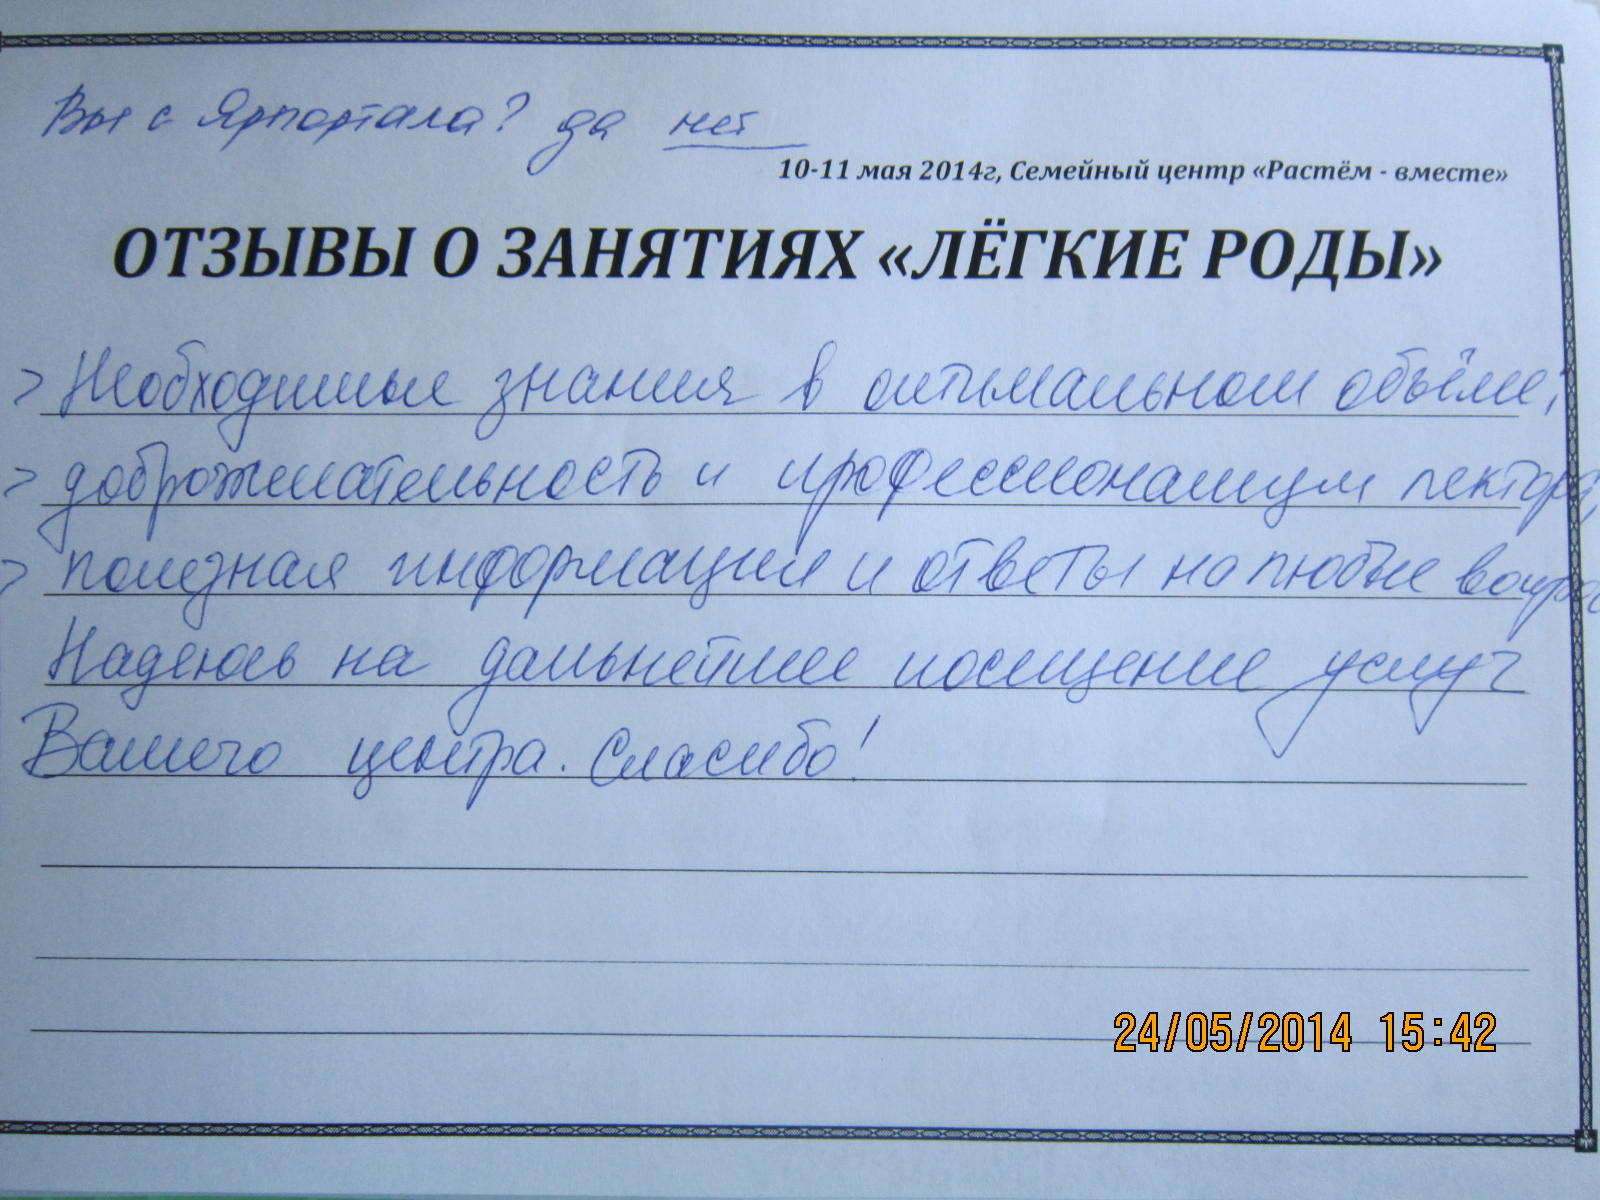 Вы с Ярпортала? да нет
10-11 мая 2014г, Семейный центр «Растём - вместе»
ОТЗЫВЫ О ЗАНЯТИЯХ «ЛЁГКИЕ РОДЫ»
> Необходимые знания в оптимальном объёме,
> доброжелательность и профессионализм лектора,
> полезная информация и ответы на любые вопро
Надеюсь на дальнейшее посещение услуг
Вашего центра. Спасибо!
24/05/2014 15:42